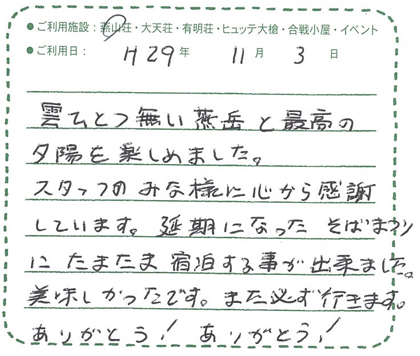 ●ご利用施設：燕山荘・大天荘・有明荘・ヒュッテ大槍・合戦小屋・イベント
●ご利用日： H29年 11月 3日
雲ひとつ無い燕岳と最高の
夕陽を楽しめました。
スタッフのみな様に心から感謝
しています。延期になったそばまつり
にたまたま宿泊する事が出来ました。
美味しかったです。また必ず行きます。
ありがとう！ ありがとう！